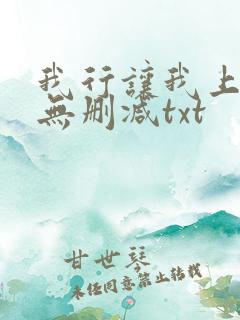 我行讓我上
無刪減txt
甘世琴
未任同意禁止转载